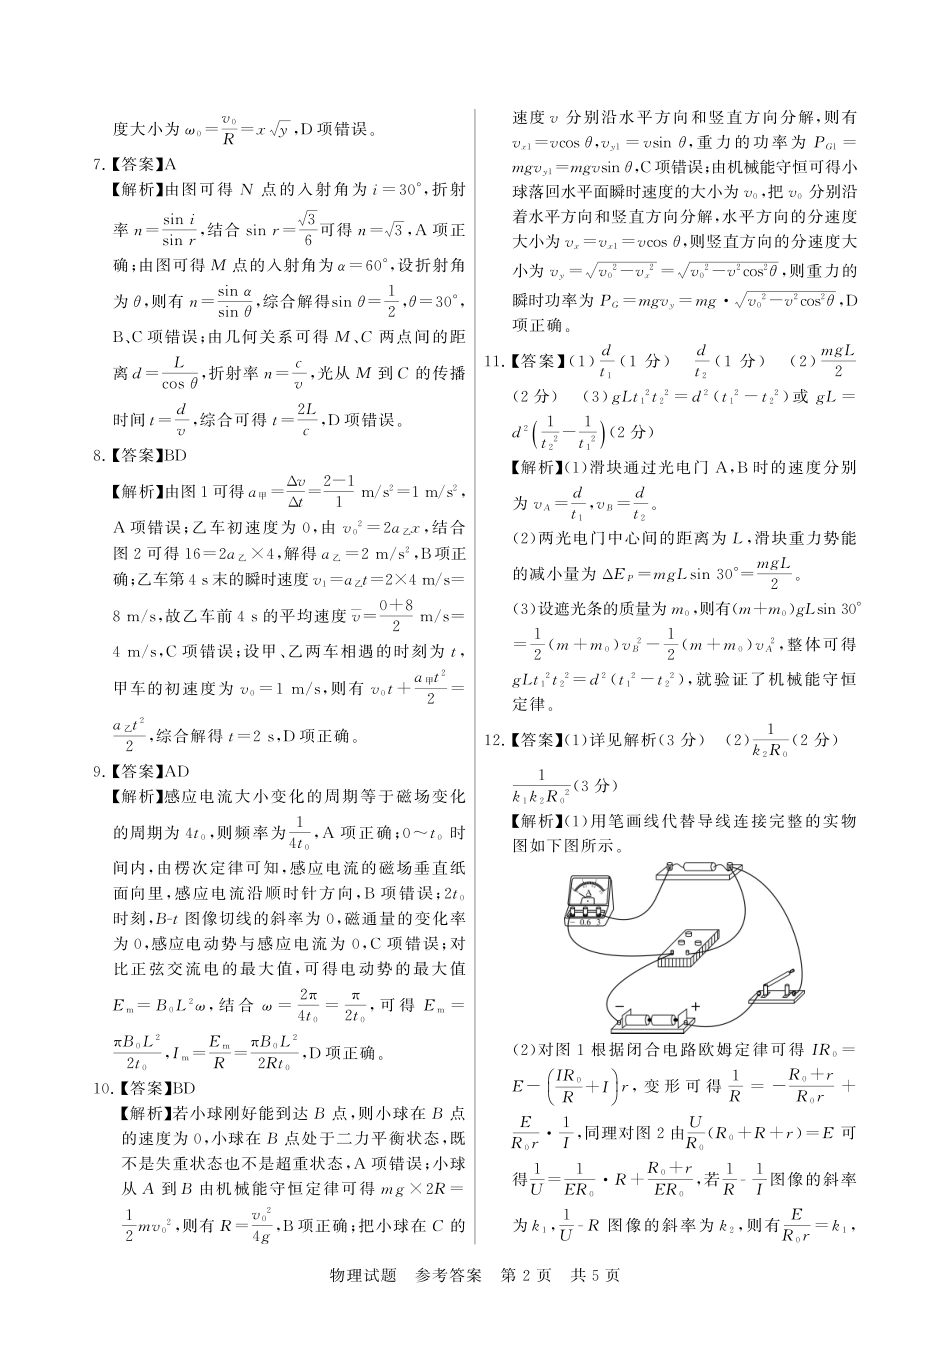 度大小为 ω₀=v₀/R=x√y,D 项错误。
7.【答案】A
【解析】由图可得 N 点的入射角为 i=30°,折射
率 n=sin i/sin r,结合 sin r=√3/6 可得 n=√3,A 项正
确;由图可得 M 点的入射角为 α=60°,设折射角
为 θ,则有 n=sin α/sin θ,综合解得sin θ=1/2,θ=30°,
B、C 项错误;由几何关系可得 M、C 两点间的距
离 d=L/cos θ,折射率 n=c/v,光从 M 到 C 的传播
时间 t=d/v,综合可得 t=2L/c,D 项错误。
8.【答案】BD
【解析】由图 1 可得 a甲=Δv/Δt=(2-1)/1 m/s²=1 m/s²,
A 项错误;乙车初速度为 0,由 v₀²=2a乙x,结合
图 2 可得 16=2a乙×4,解得 a乙=2 m/s²,B项正
确;乙车第 4 s 末的瞬时速度 v₁=a乙t=2×4 m/s=
8 m/s,故乙车前 4 s 的平均速度 v̄=(0+8)/2 m/s=
4 m/s,C 项错误;设甲、乙两车相遇的时刻为 t,
甲车的初速度为 v₀=1 m/s,则有 v₀t+a甲t²/2=
a乙t²/2,综合解得 t=2 s,D 项正确。
9.【答案】AD
【解析】感应电流大小变化的周期等于磁场变化
的周期为 4t₀,则频率为 1/(4t₀),A 项正确;0~t₀ 时
间内,由楞次定律可知,感应电流的磁场垂直纸
面向里,感应电流沿顺时针方向,B 项错误;2t₀
时刻,B-t 图像切线的斜率为 0,磁通量的变化率
为 0,感应电动势与感应电流为 0,C 项错误;对
比正弦交流电的最大值,可得电动势的最大值
Eₘ=B₀L²ω,结合 ω=2π/(4t₀)=π/(2t₀),可得 Eₘ=
πB₀L²/(2t₀),Iₘ=Eₘ/R=πB₀L²/(2Rt₀),D 项正确。
10.【答案】BD
【解析】若小球刚好能到达 B 点,则小球在 B 点
的速度为 0,小球在 B 点处于二力平衡状态,既
不是失重状态也不是超重状态,A 项错误;小球
从 A 到 B 由机械能守恒定律可得 mg×2R=
1/2 mv₀²,则有 R=v₀²/(4g),B 项正确;把小球在 C 的
速度 v 分别沿水平方向和竖直方向分解,则有
vₓ₁=vcos θ,v_y1=vsin θ,重力的功率为 P_G1=
mgv_y1=mgvsin θ,C 项错误;由机械能守恒可得小
球落回水平面瞬时速度的大小为 v₀,把 v₀ 分别沿
着水平方向和竖直方向分解,水平方向的分速度
大小为 vₓ=vₓ₁=vcos θ,则竖直方向的分速度大
小为 v_y=√(v₀²-vₓ²)=√(v₀²-v²cos²θ),则重力的
瞬时功率为 P_G=mgv_y=mg·√(v₀²-v²cos²θ),D
项正确。
11.【答案】(1) d/t₁ (1 分) d/t₂ (1 分) (2) mgL/2
(2 分) (3)gLt₁²t₂²=d²(t₁²-t₂²)或 gL=
d²(1/t₂²-1/t₁²)(2 分)
【解析】(1)滑块通过光电门 A,B 时的速度分别
为 v_A=d/t₁,v_B=d/t₂。
(2)两光电门中心间的距离为 L,滑块重力势能
的减小量为 ΔE_P=mgLsin 30°=mgL/2。
(3)设遮光条的质量为 m₀,则有(m+m₀)gLsin 30°
=1/2(m+m₀)v_B²-1/2(m+m₀)v_A²,整体可得
gLt₁²t₂²=d²(t₁²-t₂²),就验证了机械能守恒
定律。
12.【答案】(1)详见解析(3 分) (2) 1/(k₂R₀) (2 分)
1/(k₁k₂R₀²) (3 分)
【解析】(1)用笔画线代替导线连接完整的实物
图如下图所示。
A
- 0.6 3
- +
(2)对图 1 根据闭合电路欧姆定律可得 IR₀=
E-(IR₀/R+I)r,变形可得 1/R=-(R₀+r)/(R₀r)+
E/(R₀r)·1/I,同理对图 2 由 U/R₀(R₀+R+r)=E 可
得 1/U=1/(ER₀)·R+(R₀+r)/(ER₀),若 1/R-1/I 图像的斜率
为 k₁,1/U-R 图像的斜率为 k₂,则有 E/(R₀r)=k₁,
物理试题 参考答案 第 2 页 共 5 页